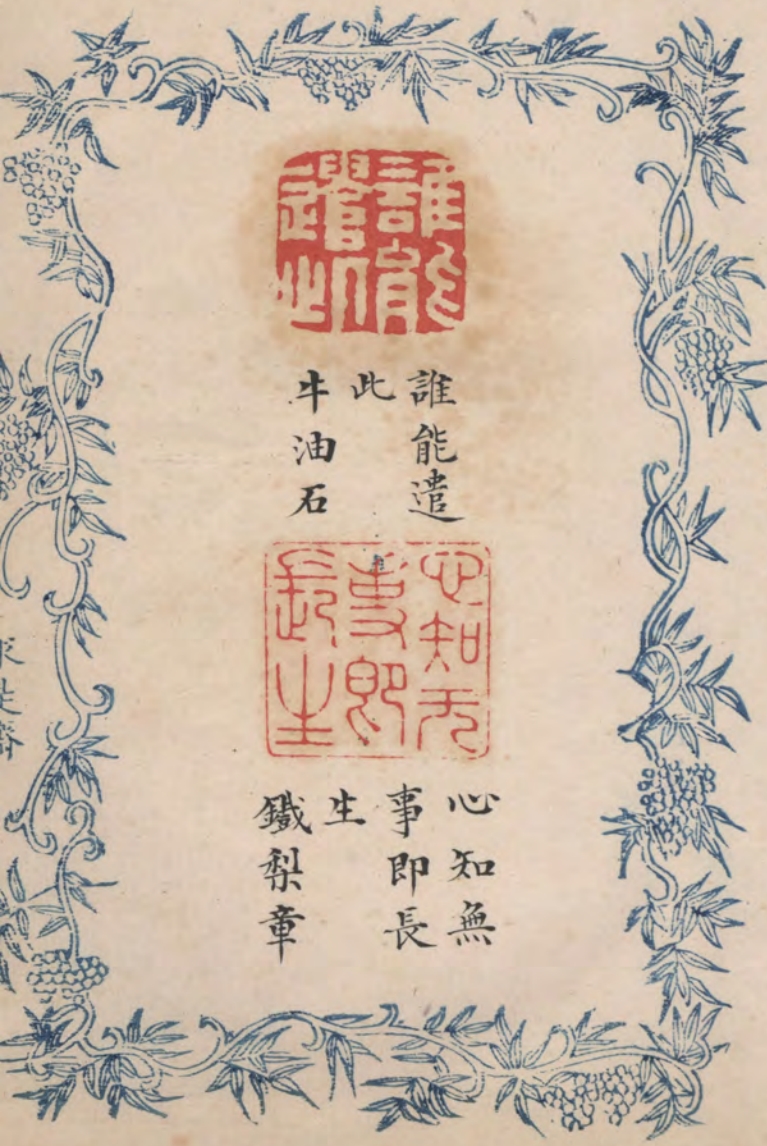 誰能
遣此
誰能遣
此
牛油石
心知无
事即
長生
心知無
事即長
生
鐵梨章